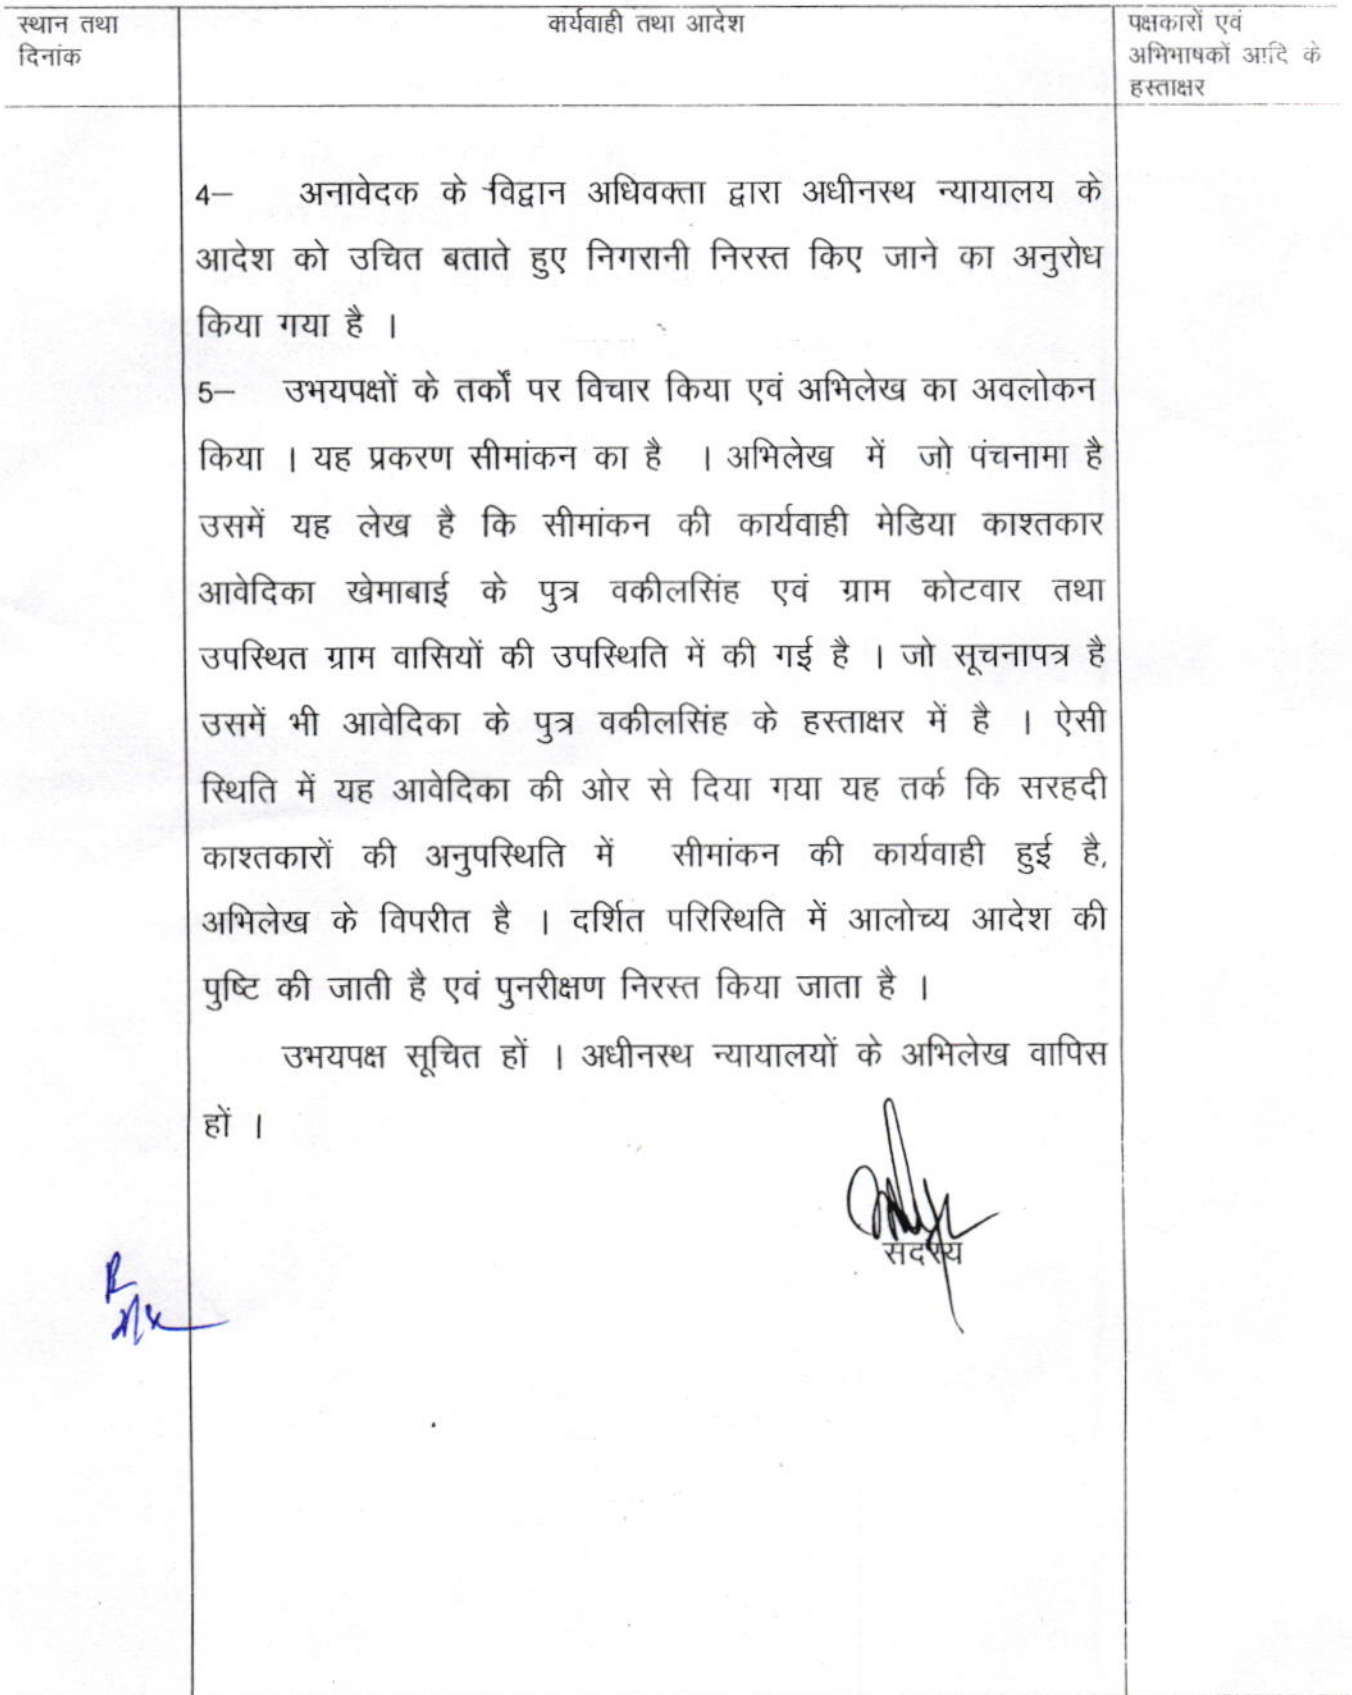 स्थान तथा
दिनांक
कार्यवाही तथा आदेश
पक्षकारों एवं
अभिभाषकों आदि के
हस्ताक्षर
4– अनावेदक के विद्वान अधिवक्ता द्वारा अधीनस्थ न्यायालय के
आदेश को उचित बताते हुए निगरानी निरस्त किए जाने का अनुरोध
किया गया है ।
5– उभयपक्षों के तर्कों पर विचार किया एवं अभिलेख का अवलोकन
किया । यह प्रकरण सीमांकन का है । अभिलेख में जो पंचनामा है
उसमें यह लेख है कि सीमांकन की कार्यवाही मेडिया काश्तकार
आवेदिका खेमाबाई के पुत्र वकीलसिंह एवं ग्राम कोटवार तथा
उपस्थित ग्राम वासियों की उपस्थिति में की गई है । जो सूचनापत्र है
उसमें भी आवेदिका के पुत्र वकीलसिंह के हस्ताक्षर में है । ऐसी
स्थिति में यह आवेदिका की ओर से दिया गया यह तर्क कि सरहदी
काश्तकारों की अनुपस्थिति में सीमांकन की कार्यवाही हुई है,
अभिलेख के विपरीत है । दर्शित परिस्थिति में आलोच्य आदेश की
पुष्टि की जाती है एवं पुनरीक्षण निरस्त किया जाता है ।
उभयपक्ष सूचित हों । अधीनस्थ न्यायालयों के अभिलेख वापिस
हों ।
सदस्य